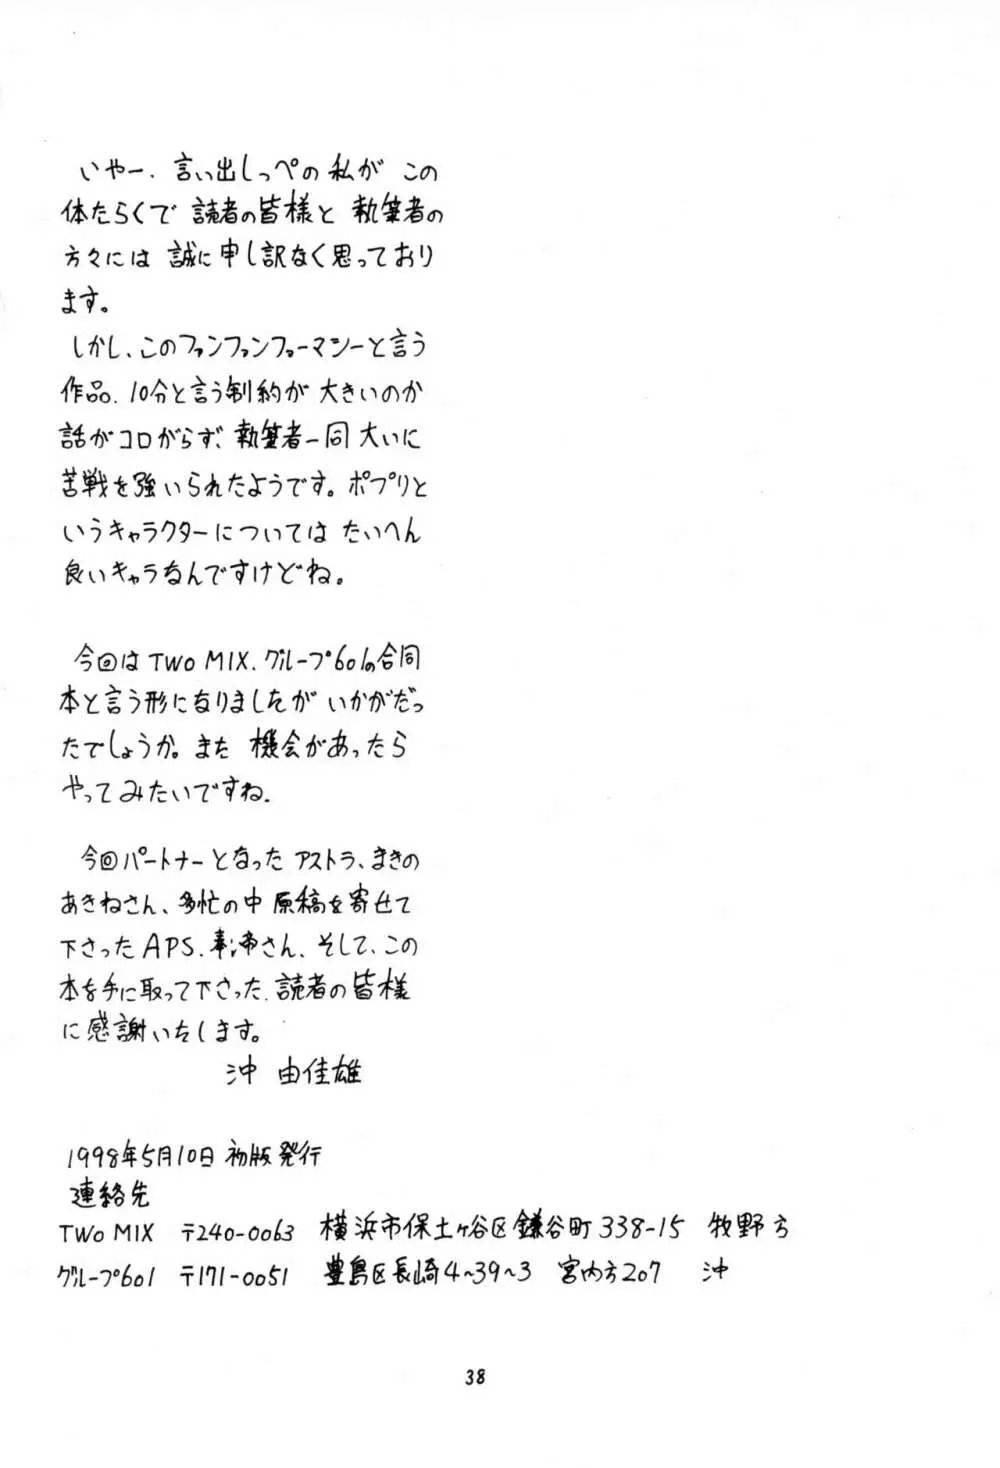 いやー、言い出しっぺの私が この
体たらくで 読者の皆様と 執筆者の
方々には 誠に申し訳なく思っており
ます。
しかし、このファンファンファーマシーと言う
作品、10分と言う制約が 大きいのか
話がコロがらず、執筆者一同 大いに
苦戦を強いられたようです。ポプリと
いうキャラクターについては たいへん
良いキャラなんですけどね。
今回は TWO MIX、グループ601の合同
本と言う形になりましたが いかがだっ
たでしょうか。また 機会があったら
やってみたいですね。
今回パートナーとなった アストラ、まきの
あきねさん、多忙の中 原稿を寄せて
下さった APS、 さん、そして、この
本を手に取って下さった、読者の皆様
に感謝いたします。
沖 由佳雄
1998年5月10日 初版発行
連絡先
TWO MIX 〒240-0063 横浜市保土ヶ谷区鎌谷町338-15 牧野方
グループ601 〒171-0051 豊島区長崎4~39~3 宮内方207 沖
38